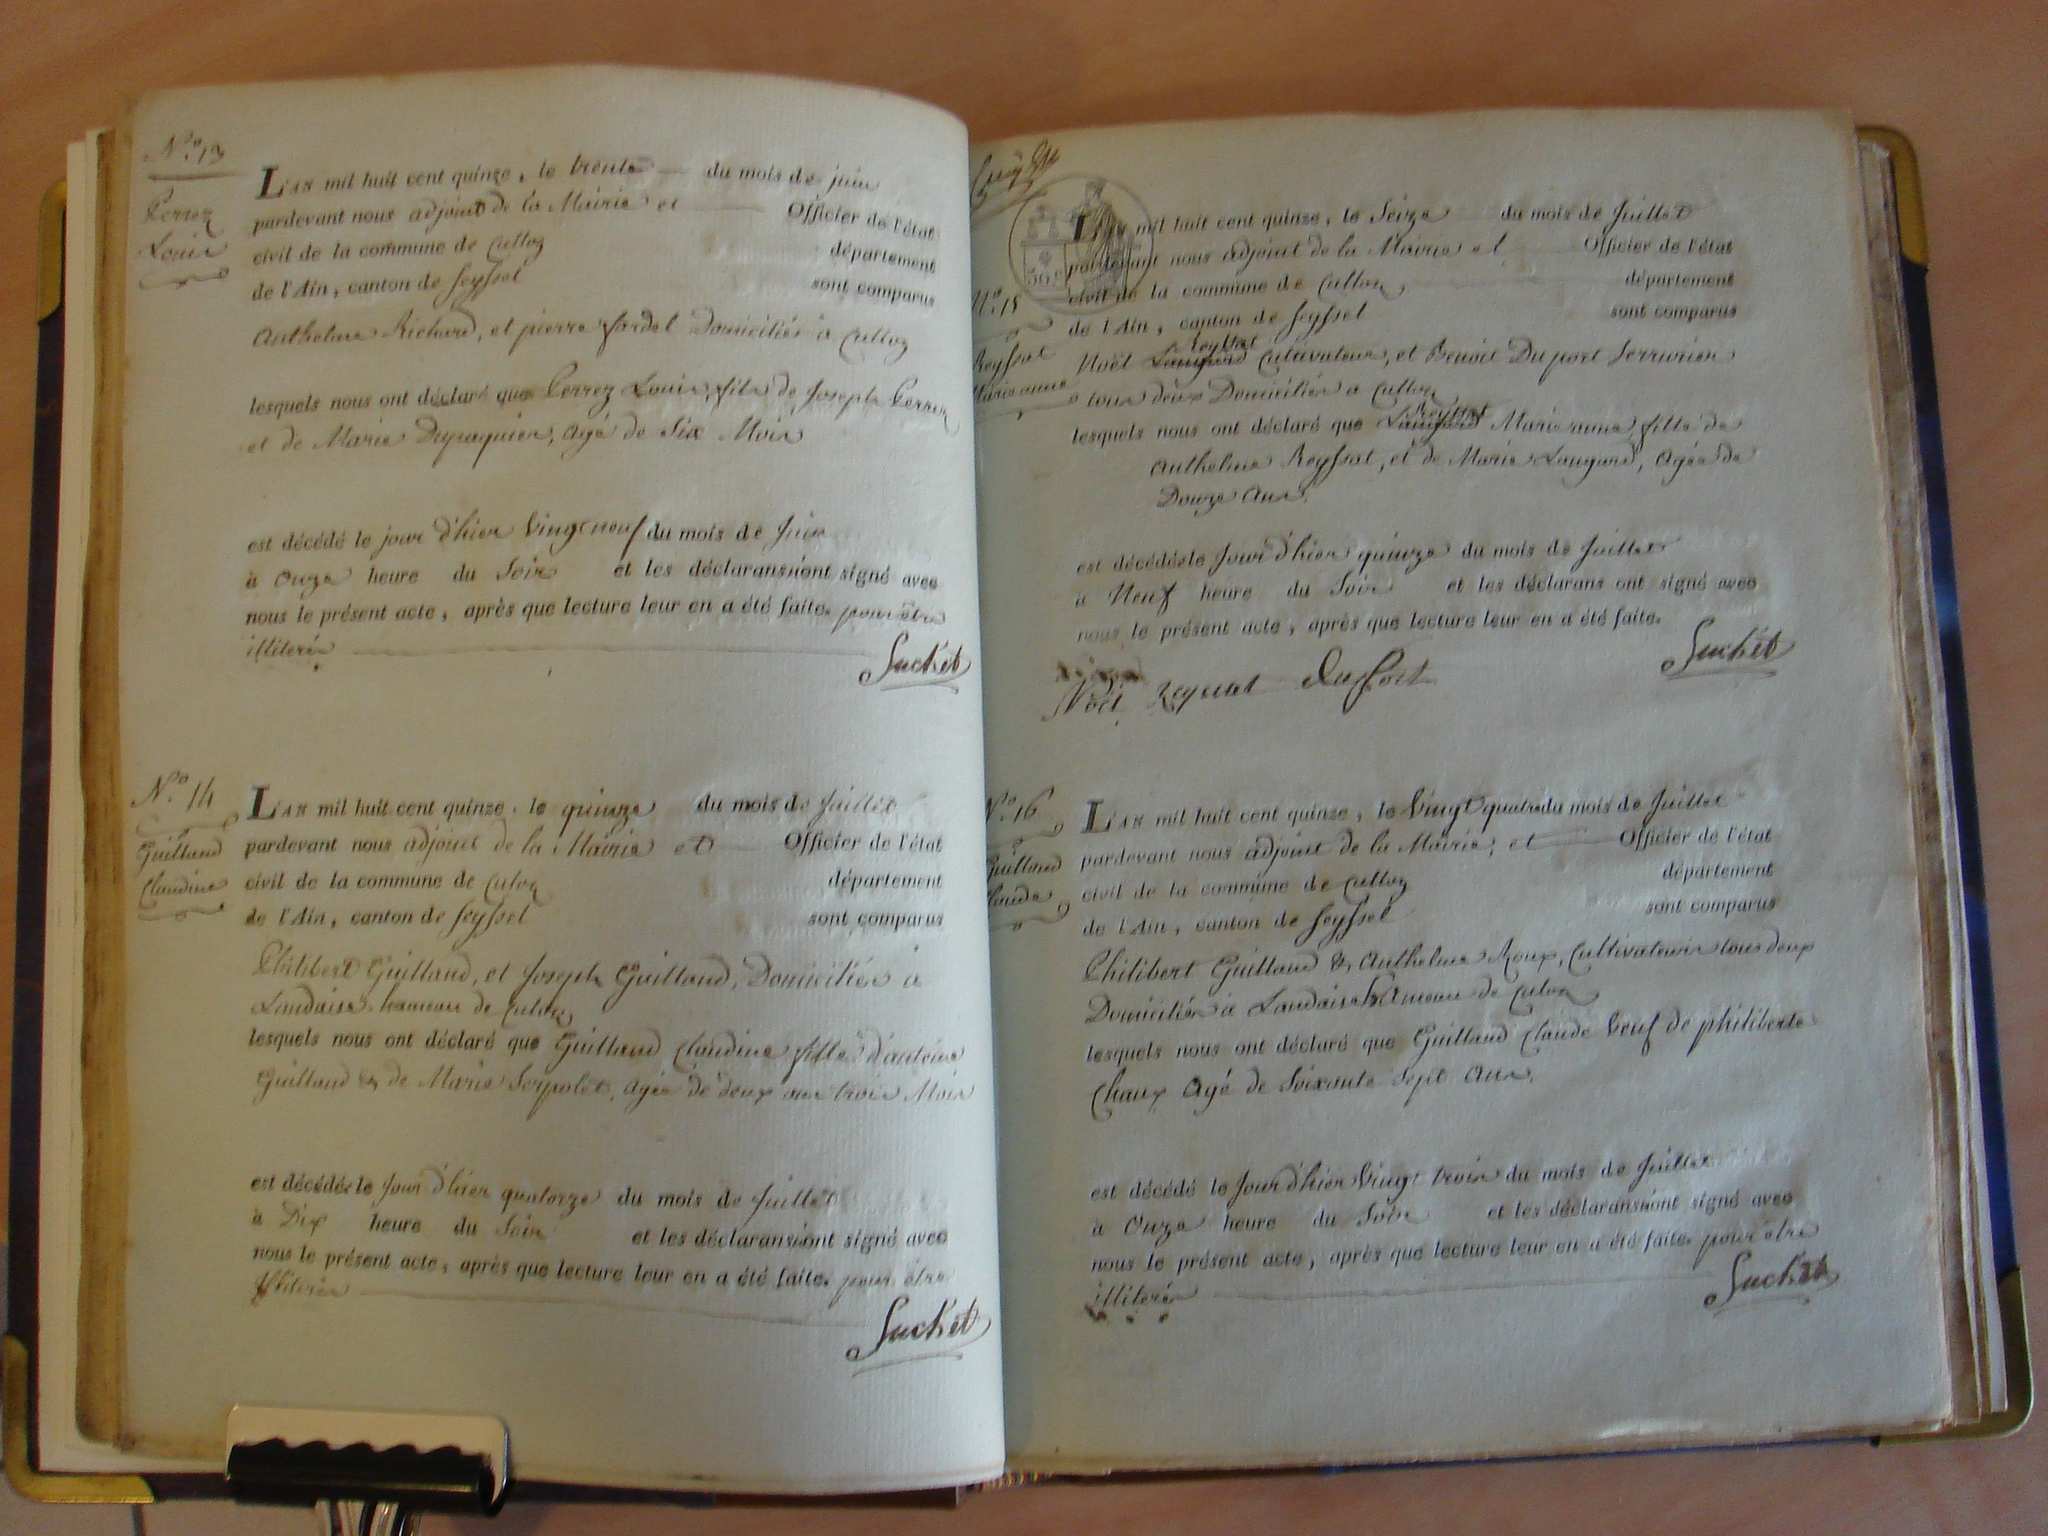 N.o 13
Perrez
Louis
L'AN mil huit cent quinze, le trente du mois de juin
pardevant nous adjoint de la Mairie et Officier de l'état
civil de la commune de Culloz département
de l'Ain, canton de Seyssel sont comparus
Anthelme Richard, et pierre fardel Domiciliés à Culloz
lesquels nous ont déclaré que Perrez Louis, fils de Joseph Perrez
et de Marie Dupaquier, agé de Six Mois
est décédé le jour d'hier Vingt neuf du mois de Juin
à Onze heure du Soir et les déclarans n'ont signé avec
nous le présent acte, après que lecture leur en a été faite. pour être
illiterés
Suchet
N.o 14
Guilland
Claudine
L'AN mil huit cent quinze, le quinze du mois de Juillet
pardevant nous adjoint de la Mairie et Officier de l'état
civil de la commune de Culoz département
de l'Ain, canton de Seyssel sont comparus
Philibert Guilland, et Joseph Guilland, Domiciliés à
Landaise hameau de Culoz
lesquels nous ont déclaré que Guilland Claudine fille d'antoine
Guilland & de Marie Serpolet, agée de deux ans trois Mois
est décédée le Jour d'hier quatorze du mois de Juillet
à Dix heure du Soir et les déclarans n'ont signé avec
nous le présent acte, après que lecture leur en a été faite. pour être
illiterés
Suchet
N.o 15
Reyssat
Marie anne
L'AN mil huit cent quinze, le Seize du mois de Juillet
pardevant nous adjoint de la Mairie et Officier de l'état
civil de la commune de Culloz, département
de l'Ain, canton de Seyssel sont comparus
Reyssat
Noël Laugard Cultivateur, et Benoit Duport Serrurier
tous deux Domiciliés a Culloz
Reyssat
lesquels nous ont déclaré que Laugard Marie anne, fille de
Anthelme Reyssat, et de Marie Laugard, Agée de
Douze Ans.
est décédée le Jour d'hier quinze du mois de Juillet
à Neuf heure du Soir et les déclarans ont signé avec
nous le présent acte, après que lecture leur en a été faite.
Suchet
Noël Duport
N.o 16
Guilland
Claude
L'AN mil huit cent quinze, le Vingt quatre du mois de Juillet
pardevant nous adjoint de la Mairie, et Officier de l'état
civil de la commune de Culloz département
de l'Ain, canton de Seyssel sont comparus
Philibert Guilland & Anthelme Roux, Cultivateurs tous deux
Domiciliés à Landaise hameau de Culoz
lesquels nous ont déclaré que Guilland Claude Veuf de philiberte
Chaux Agé de Soixante Sept Ans.
est décédé le Jour d'hier Vingt trois du mois de Juillet
à Onze heure du Soir et les déclarans n'ont signé avec
nous le présent acte, après que lecture leur en a été faite. pour être
illiterés
Suchet